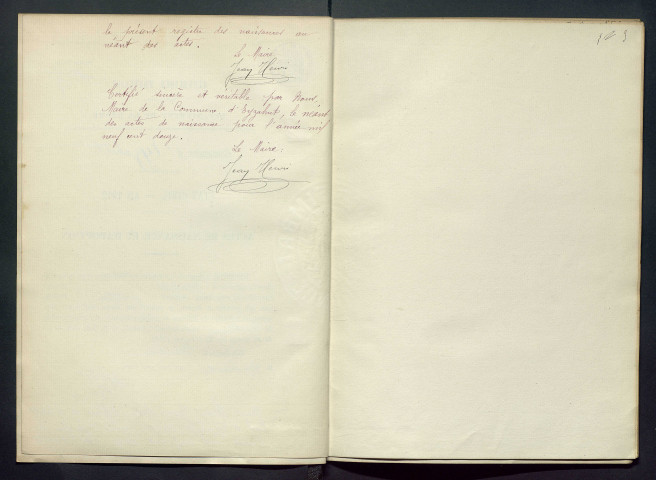 le présent registre des naissances au
néant des actes.
Le Maire
Jeay Henri
Certifié sincère et véritable par Nous
Maire de la Commune d'Eyzahut, le néant
des actes de naissance pour l'année mil
neuf cent douze.
Le Maire:
Jeay Henri